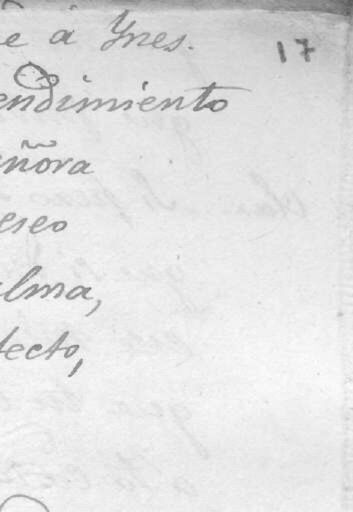 e á Ynes.
17
endimiento
eñora
eseo
alma,
fecto,